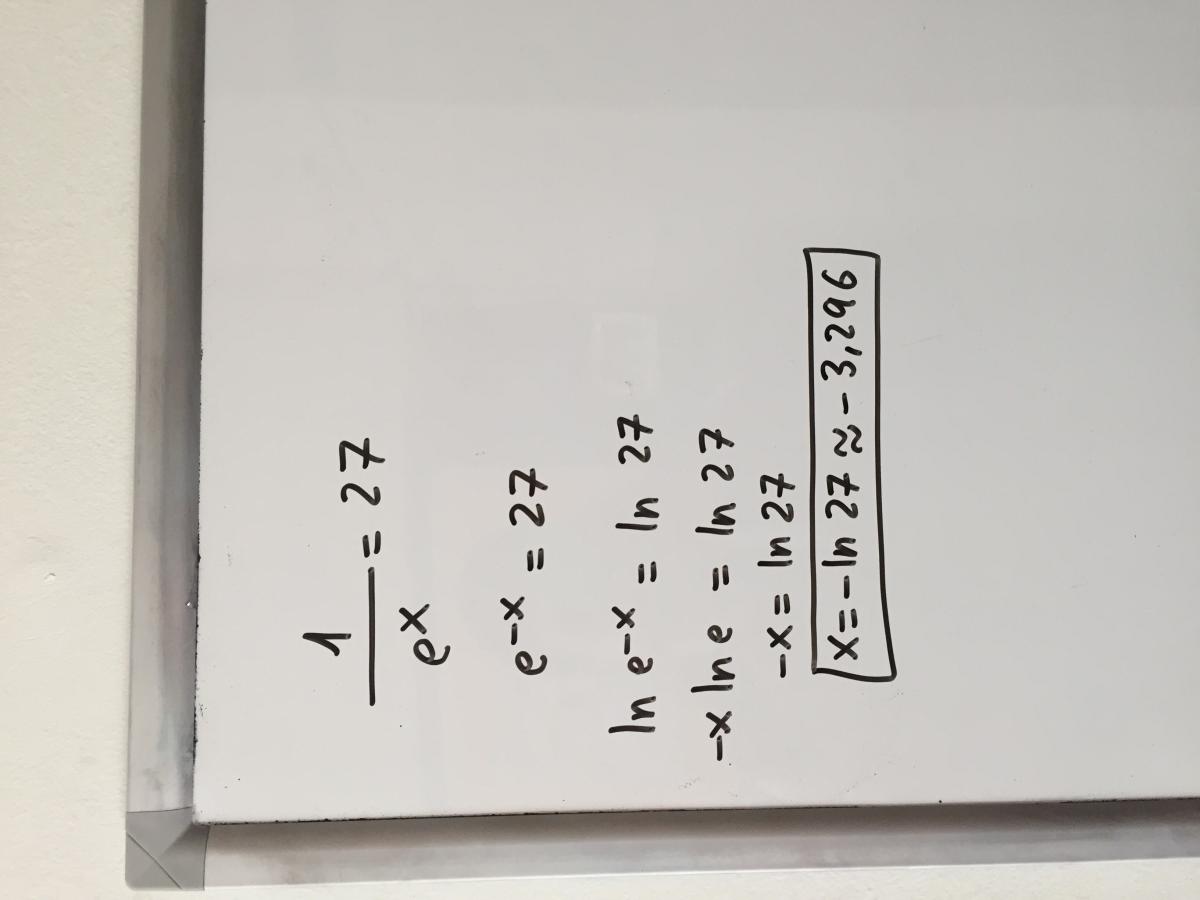 1/e^x = 27
e^-x = 27
ln e^-x = ln 27
-x ln e = ln 27
-x = ln 27
x = -ln 27 ≈ -3,296